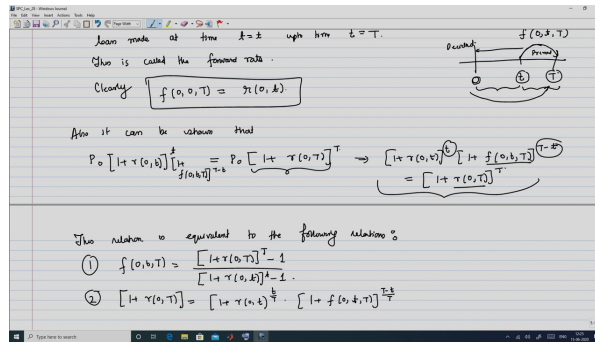 SPC_Lec_20 - Windows Journal
File Edit View Insert Actions Tools Help
Page Width
loan made at time t = t upto time t = T.
f(0, t, T)
This is called the forward rate.
0 t T
Clearly f(0, 0, T) = r(0, t).
Also it can be shown that
P₀ [1 + r(0, t)]^t [1 + f(0, t, T)]^(T-t) = P₀ [1 + r(0, T)]^T → [1 + r(0, t)]^t [1 + f(0, t, T)]^(T-t)
= [1 + r(0, T)]^T.
This relation is equivalent to the following relations:
① f(0, t, T) = [1 + r(0, T)]^T - 1 / [1 + r(0, t)]^t - 1.
② [1 + r(0, T)] = [1 + r(0, t)]^(t/T) . [1 + f(0, t, T)]^((T-t)/T)
Type here to search
ENG
12:25
11-06-2020